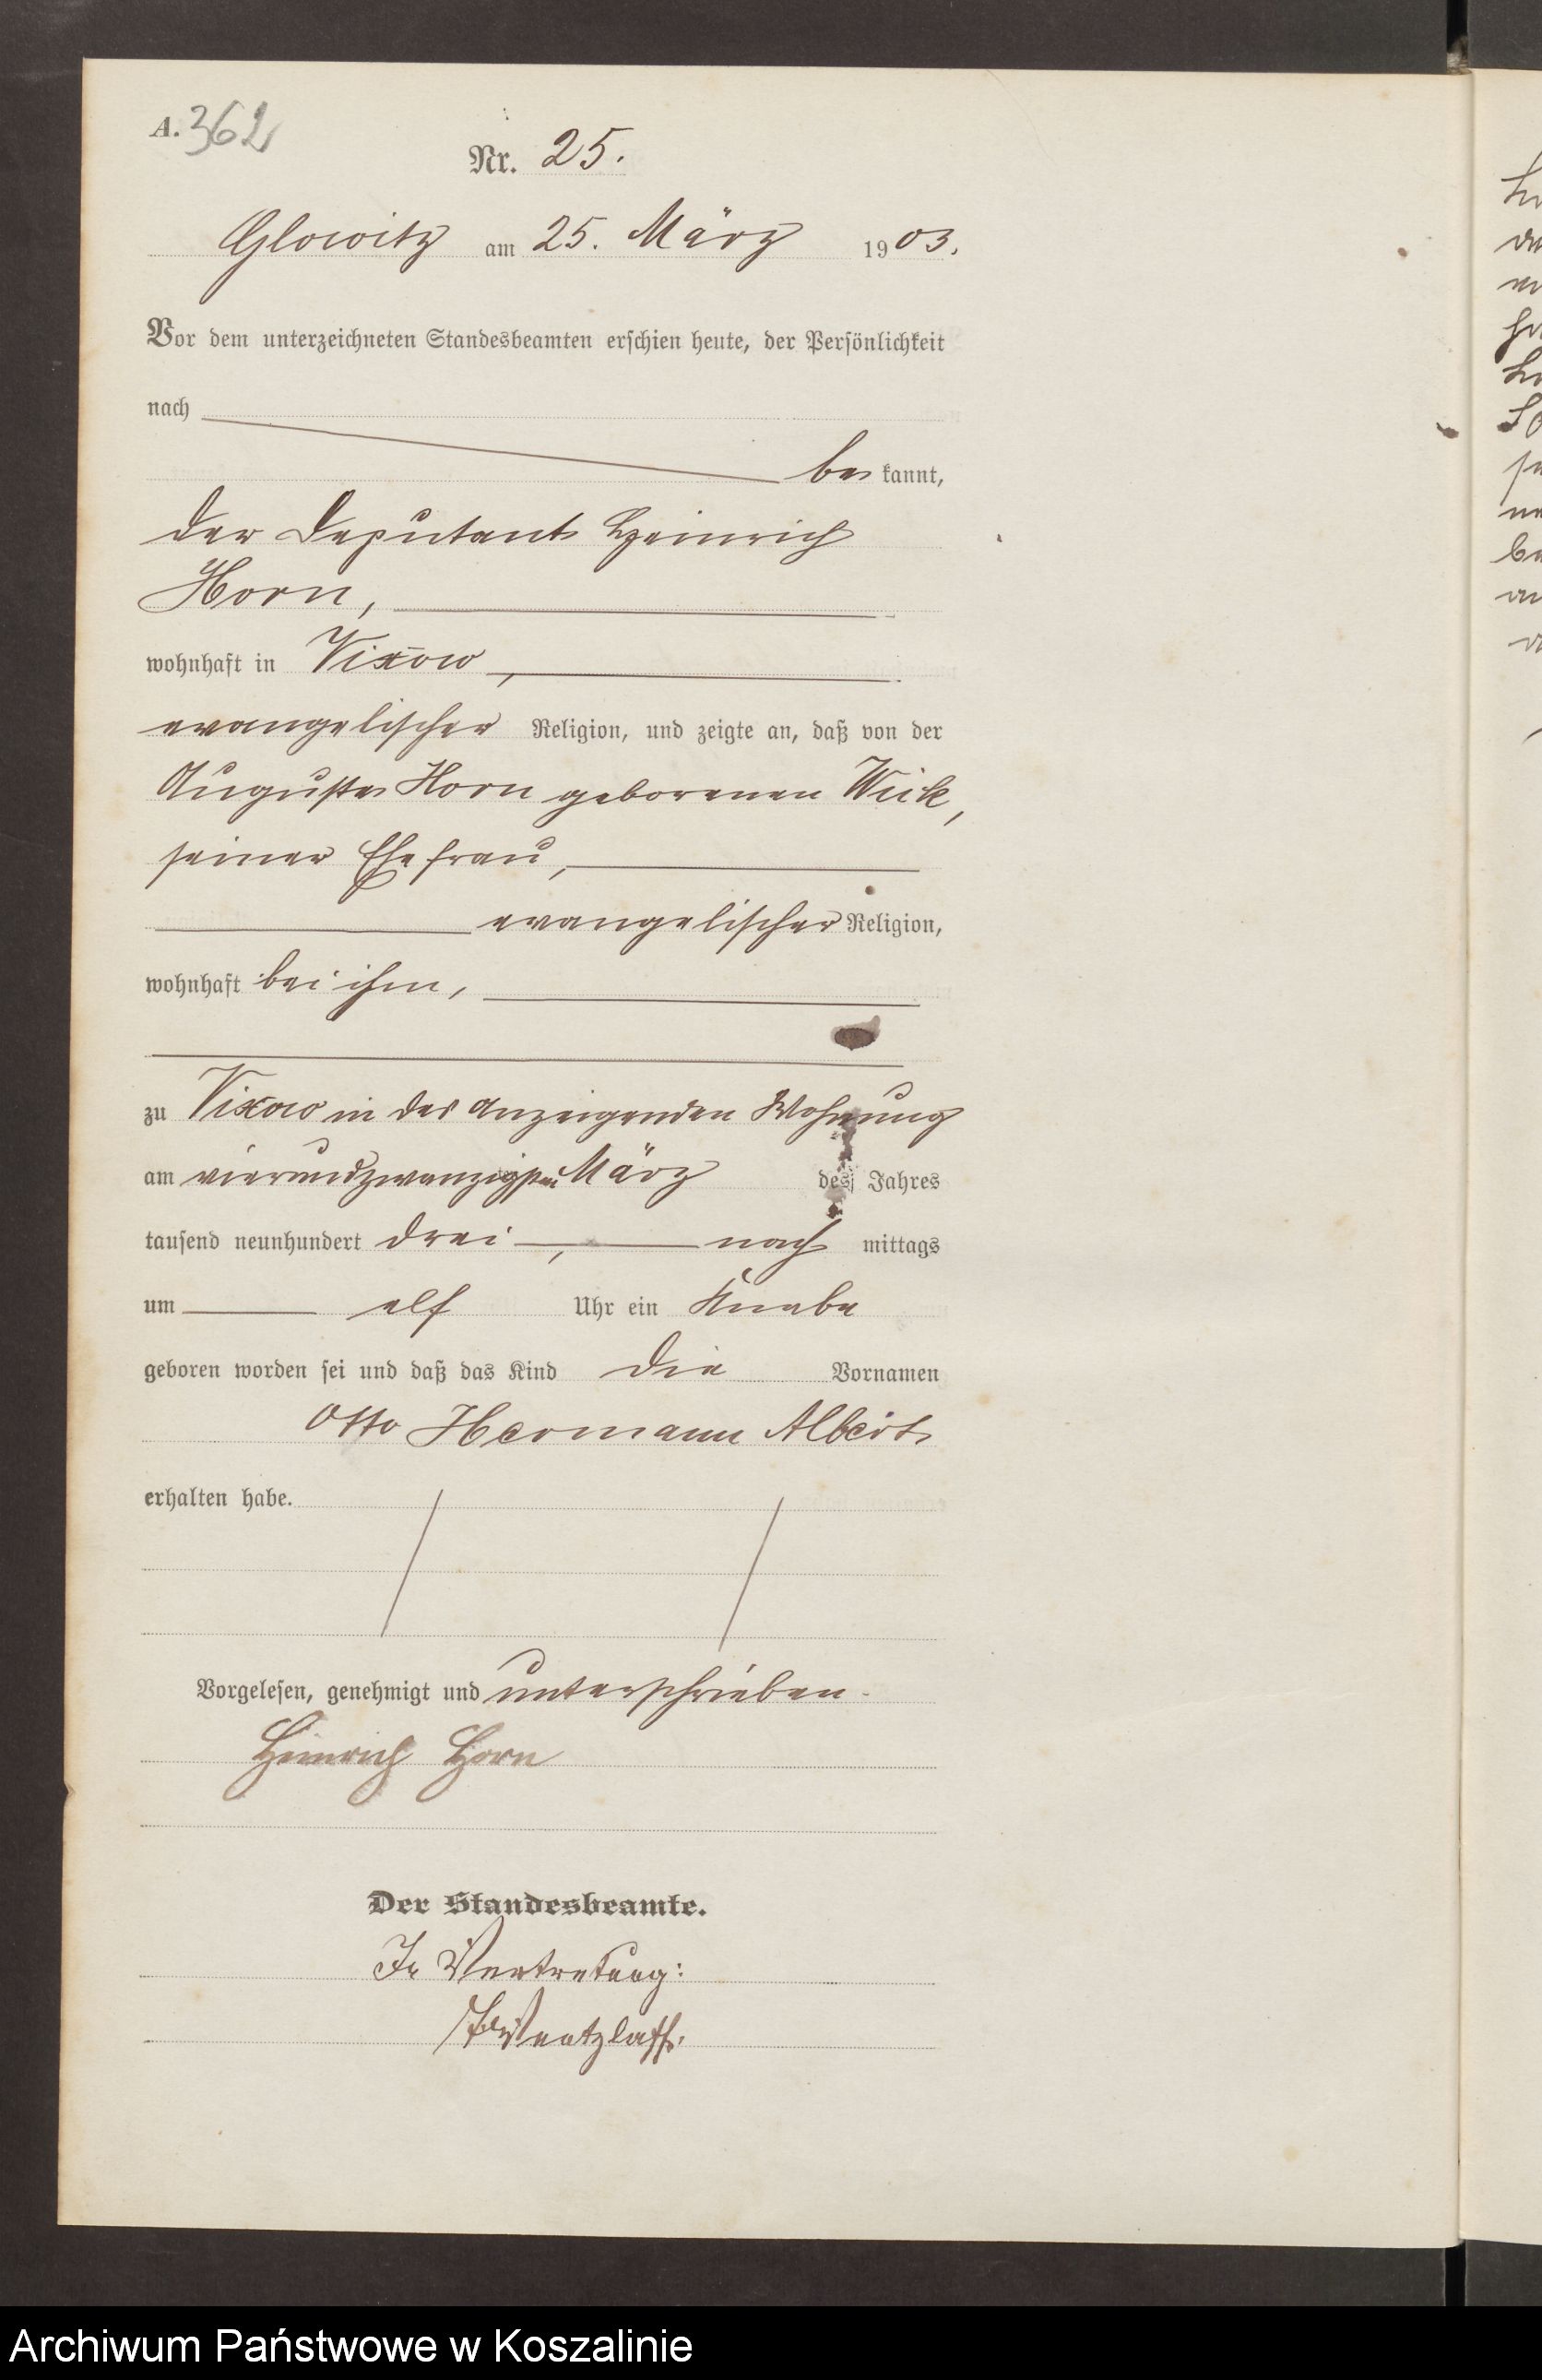 A. 362
Nr. 25.
Glowitz am 25. März 1903.
Vor dem unterzeichneten Standesbeamten erschien heute, der Persönlichkeit
nach
be kannt,
der Deputant Heinrich
Horn,
wohnhaft in Vixow,
evangelischer Religion, und zeigte an, daß von der
Auguste Horn geborenen Wick,
seiner Ehefrau,
evangelischer Religion,
wohnhaft bei ihm,
zu Vixow in der Anzeigenden Wohnung
am vierundzwanzigsten März des Jahres
tausend neunhundert drei, nach mittags
um elf Uhr ein Knabe
geboren worden sei und daß das Kind die Vornamen
Otto Hermann Albert
erhalten habe.
Vorgelesen, genehmigt und unterschrieben.
Heinrich Horn
Der Standesbeamte.
In Vertretung:
Wentzlaff.
Archiwum Państwowe w Koszalinie